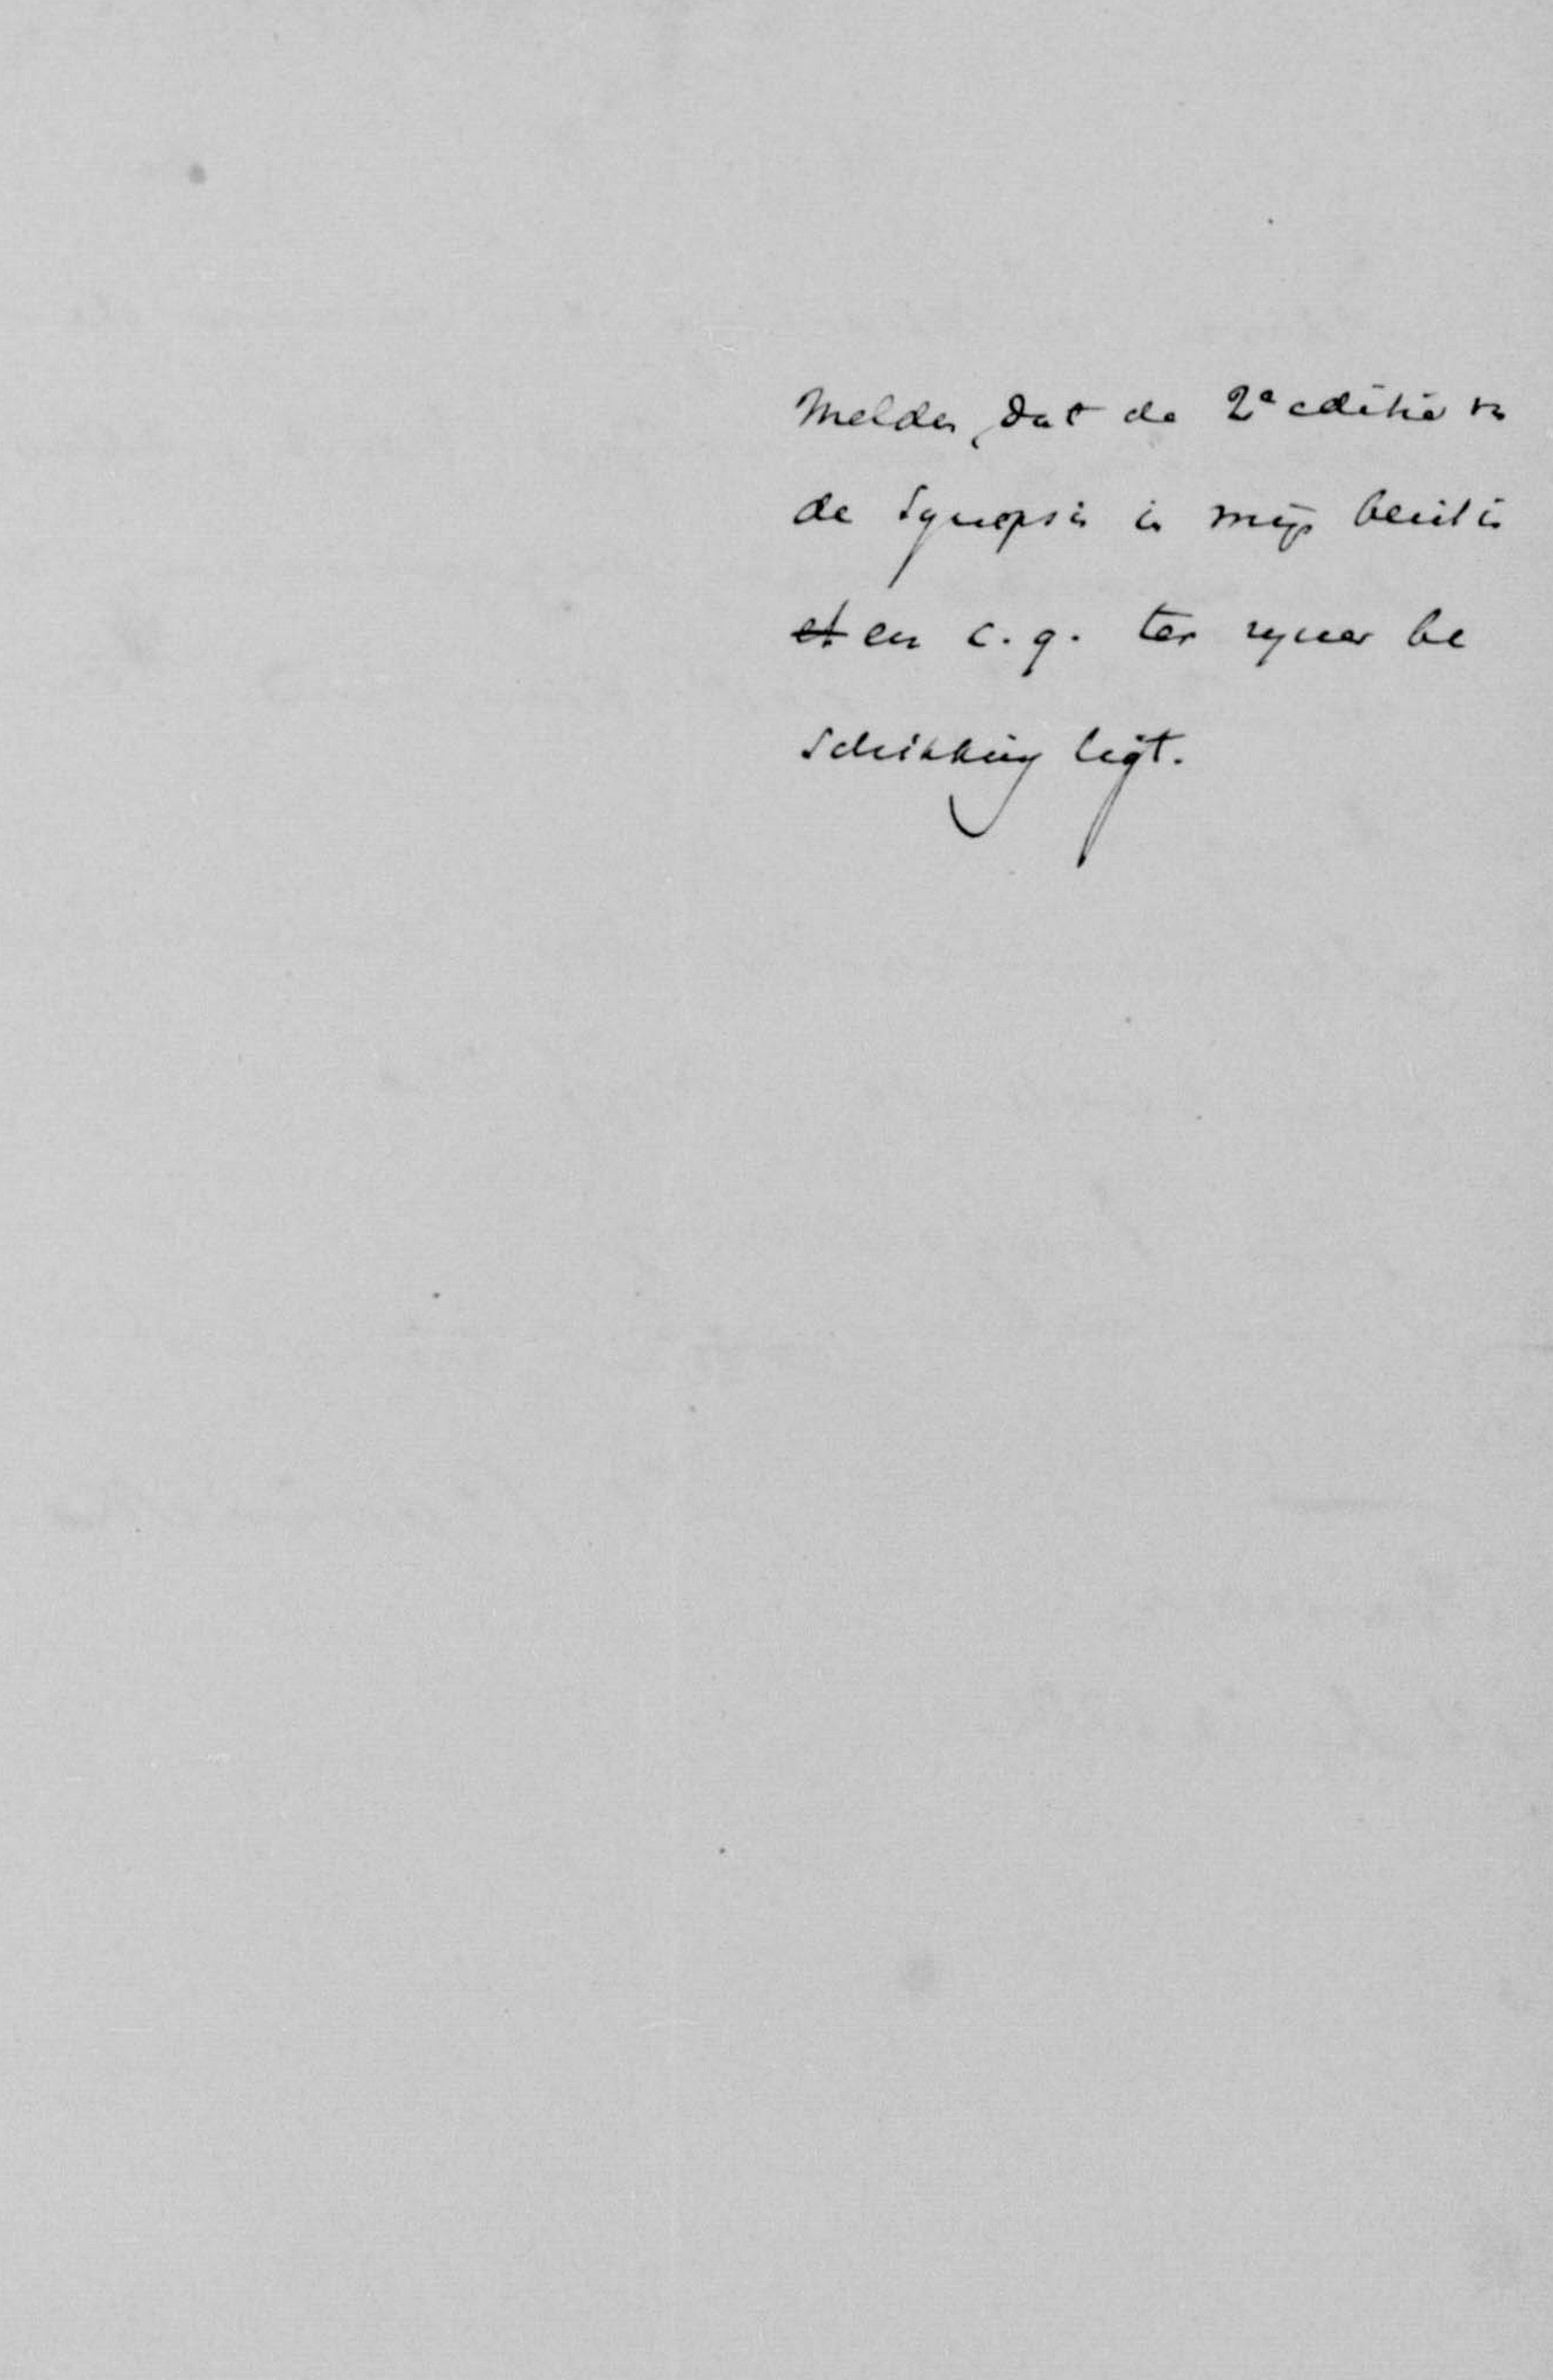 Melden, dat de 2e editie vn
de Synopsis in mijn bezit is
et en c.q. ter zyner be
schikking ligt.